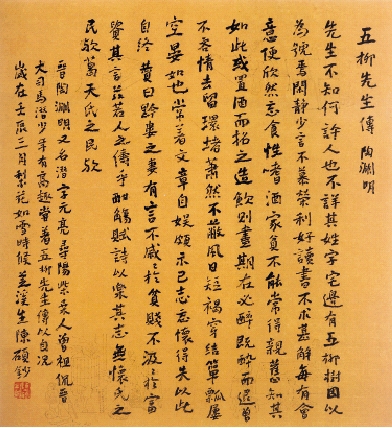 五柳先生傳 陶淵明
先生不知何許人也不詳其姓字宅邊有五柳樹因以
為號焉閑靜少言不慕榮利好讀書不求甚解每有會
意便欣然忘食性嗜酒家貧不能常得親舊知其
如此或置酒而招之造飲則盡期在必醉既醉而退曾
不吝情去留環堵蕭然不蔽風日短褐穿結簞瓢屢
空晏如也常著文章自娛頗示己志忘懷得失以此
自終 贊曰黔婁之妻有言不戚戚於貧賤不汲汲於富
貴其言茲若人之儔乎酣觴賦詩以樂其志無懷氏之
民歟葛天氏之民歟
晉陶淵明又名潛字元亮尋陽柴桑人曾祖侃晉
大司馬潛少年有高趣嘗著五柳先生傳以自況
歲在壬辰三月梨花如雪時候 溪生陳碩鈔